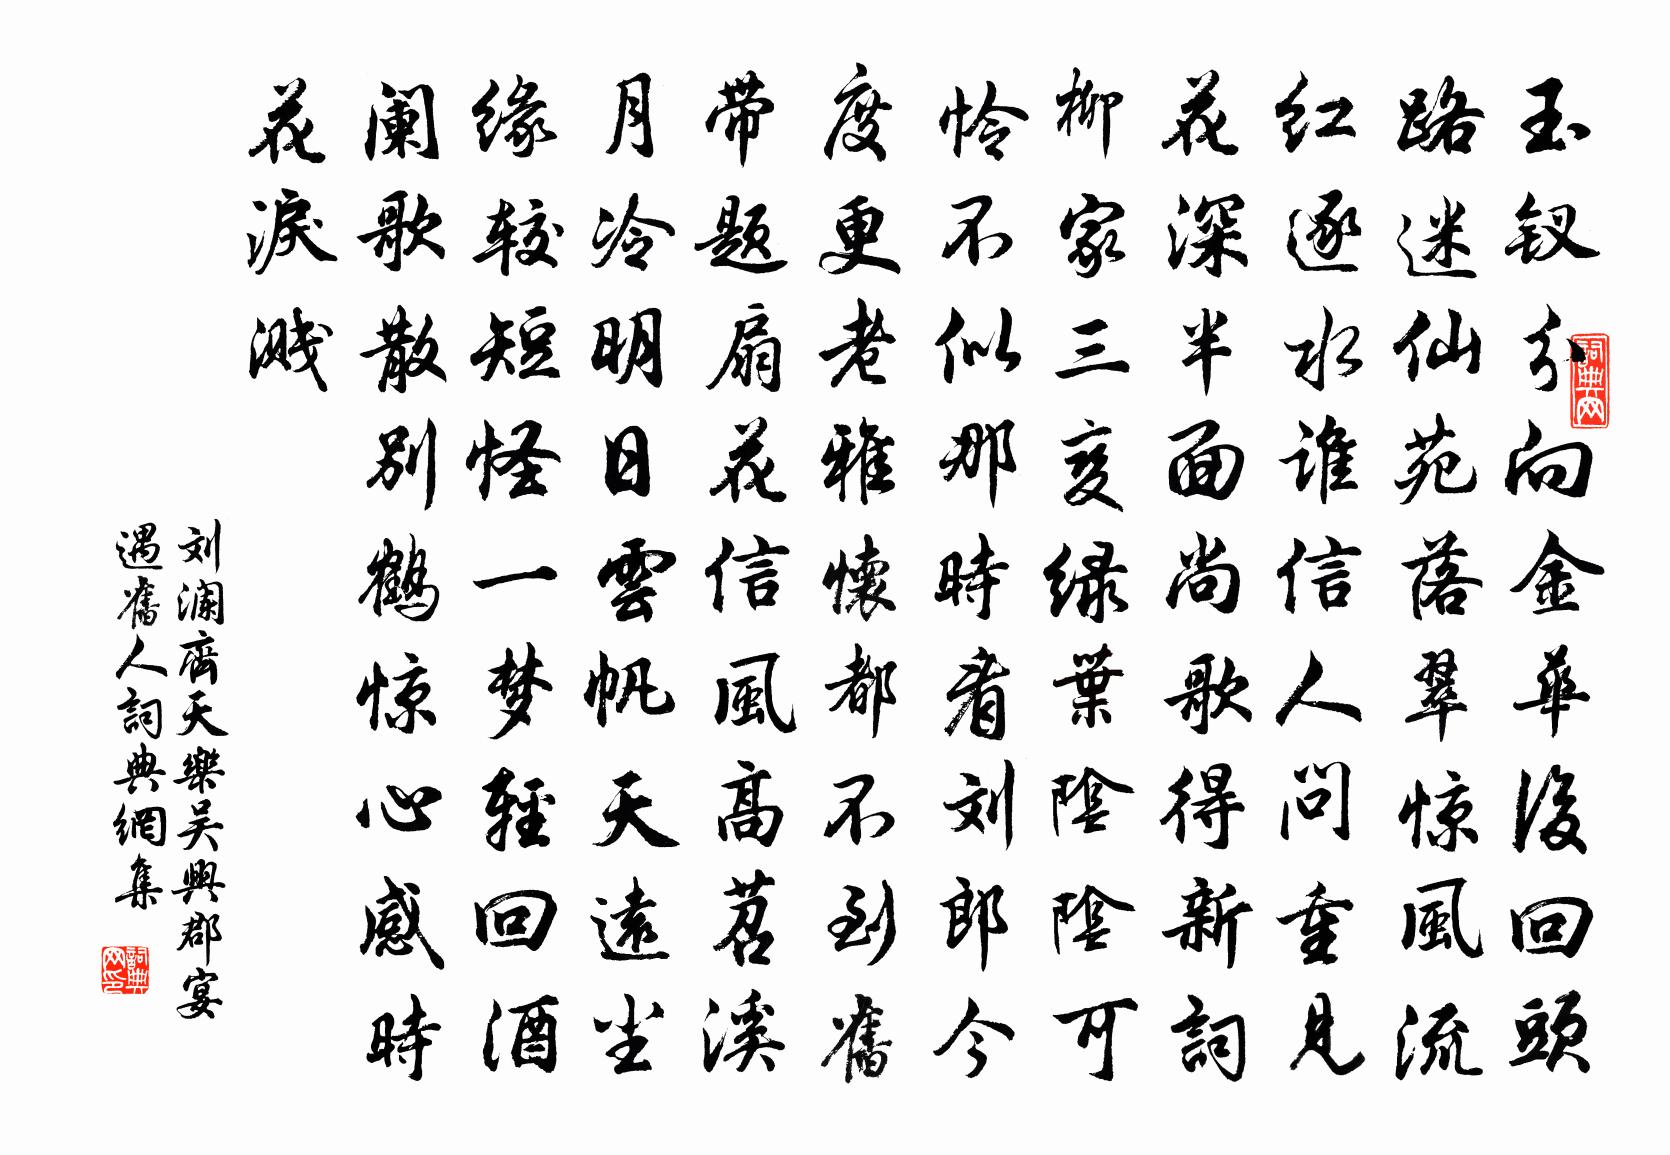 玉钗分向金華後回頭
路迷仙苑落翠惊風流
红逐水谁信人问重见
花深半面尚歌得新詞
柳家三变绿葉陰陰可
怜不似那時看刘郎今
度更老雅懷都不到舊
带题扇花信風高苕溪
月冷明日雲帆天遠尘
缘较短怪一梦輕回酒
阑歌散别鶴惊心感時
花淚溅
刘澜齊天樂吴興郡宴
遇舊人詞典網集
詞典网
詞典网印